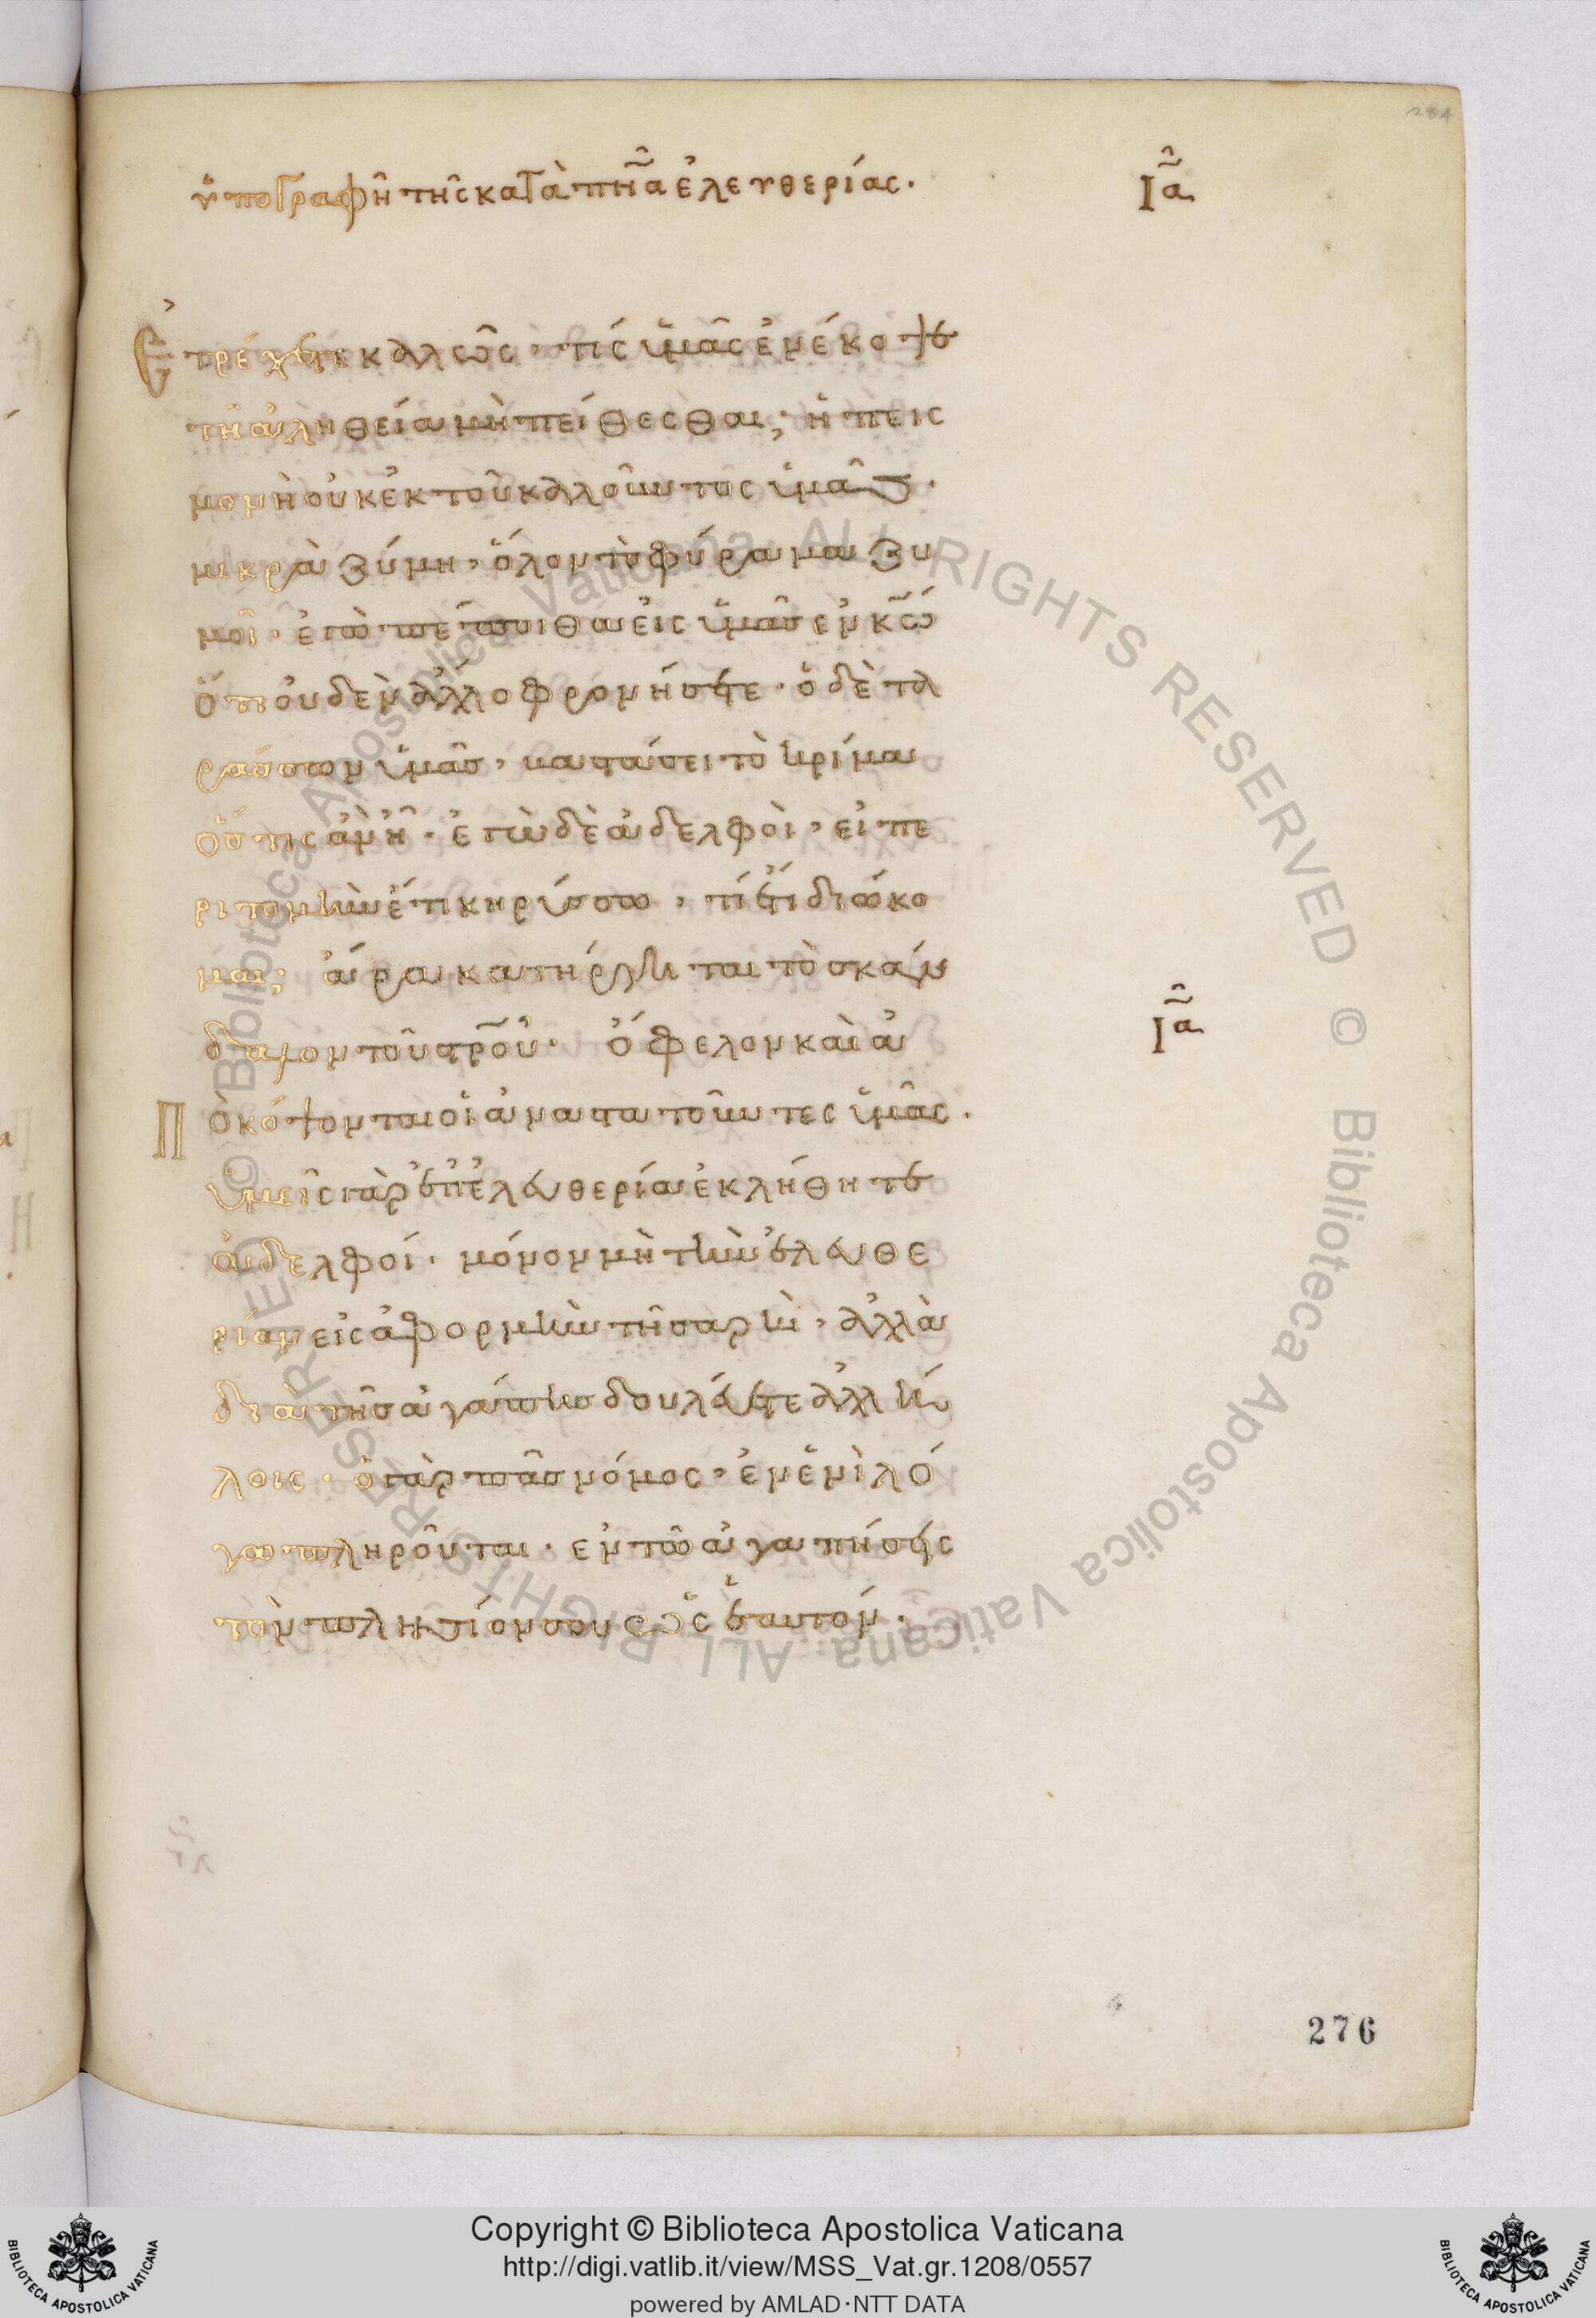 284
ὑπογραφὴ τῆς κατὰ πν̅α ἐλευθερίας· ια
Ἐτρέχετε καλῶς· τίς ὑμᾶς ἐνέκοψε
τῆ ἀληθεία μὴ πείθεσθαι; ἡ πεις
μονὴ οὐκ ἐκ τοῦ καλοῦντος ὑμᾶς·
μικρὰ ζύμη, ὅλον τὸ φύραμα ζυ
μοῖ· ἐγὼ πέποιθα εἰς ὑμᾶς ἐν κ̅ω
ὅτι οὐδὲν ἄλλο φρονήσετε· ὁ δὲ τα
ράσσων ὑμᾶς, βαστάσει τὸ κρίμα
ὅστις ἂν ἦ· ἐγὼ δὲ ἀδελφοὶ, εἰ πε
ριτομὴν ἔτι κηρύσσω, τί ἔτι διώκο
μαι; ἄρα κατήργηται τὸ σκάν
δαλον τοῦ στρ̅οῦ· ὄφελον καὶ ἀ ια
ΠΟκόψονται οἱ ἀναστατοῦντες ὑμᾶς·
ὑμεῖς γὰρ ἐπ' ἐλευθερία ἐκλήθητε
ἀδελφοί· μόνον μὴ τὴν ἐλευθε
ρίαν εἰς ἀφορμὴν τῆ σαρκὶ, ἀλλὰ
διὰ τῆς ἀγάπης δουλεύετε ἀλλή
λοις· ὁ γὰρ πᾶς νόμος, ἐν ἑνὶ λό
γω πληροῦται· ἐν τῶ ἀγαπήσεις
τὸν πλησίον σου ὡς ἑαυτόν·
276
© Biblioteca Apostolica Vaticana ALL RIGHTS RESERVED © Biblioteca Apostolica Vaticana ALL RIGHTS RESERVED
Copyright © Biblioteca Apostolica Vaticana
http://digi.vatlib.it/view/MSS_Vat.gr.1208/0557
powered by AMLAD·NTT DATA
BIBLIOTECA APOSTOLICA VATICANA
BIBLIOTECA APOSTOLICA VATICANA